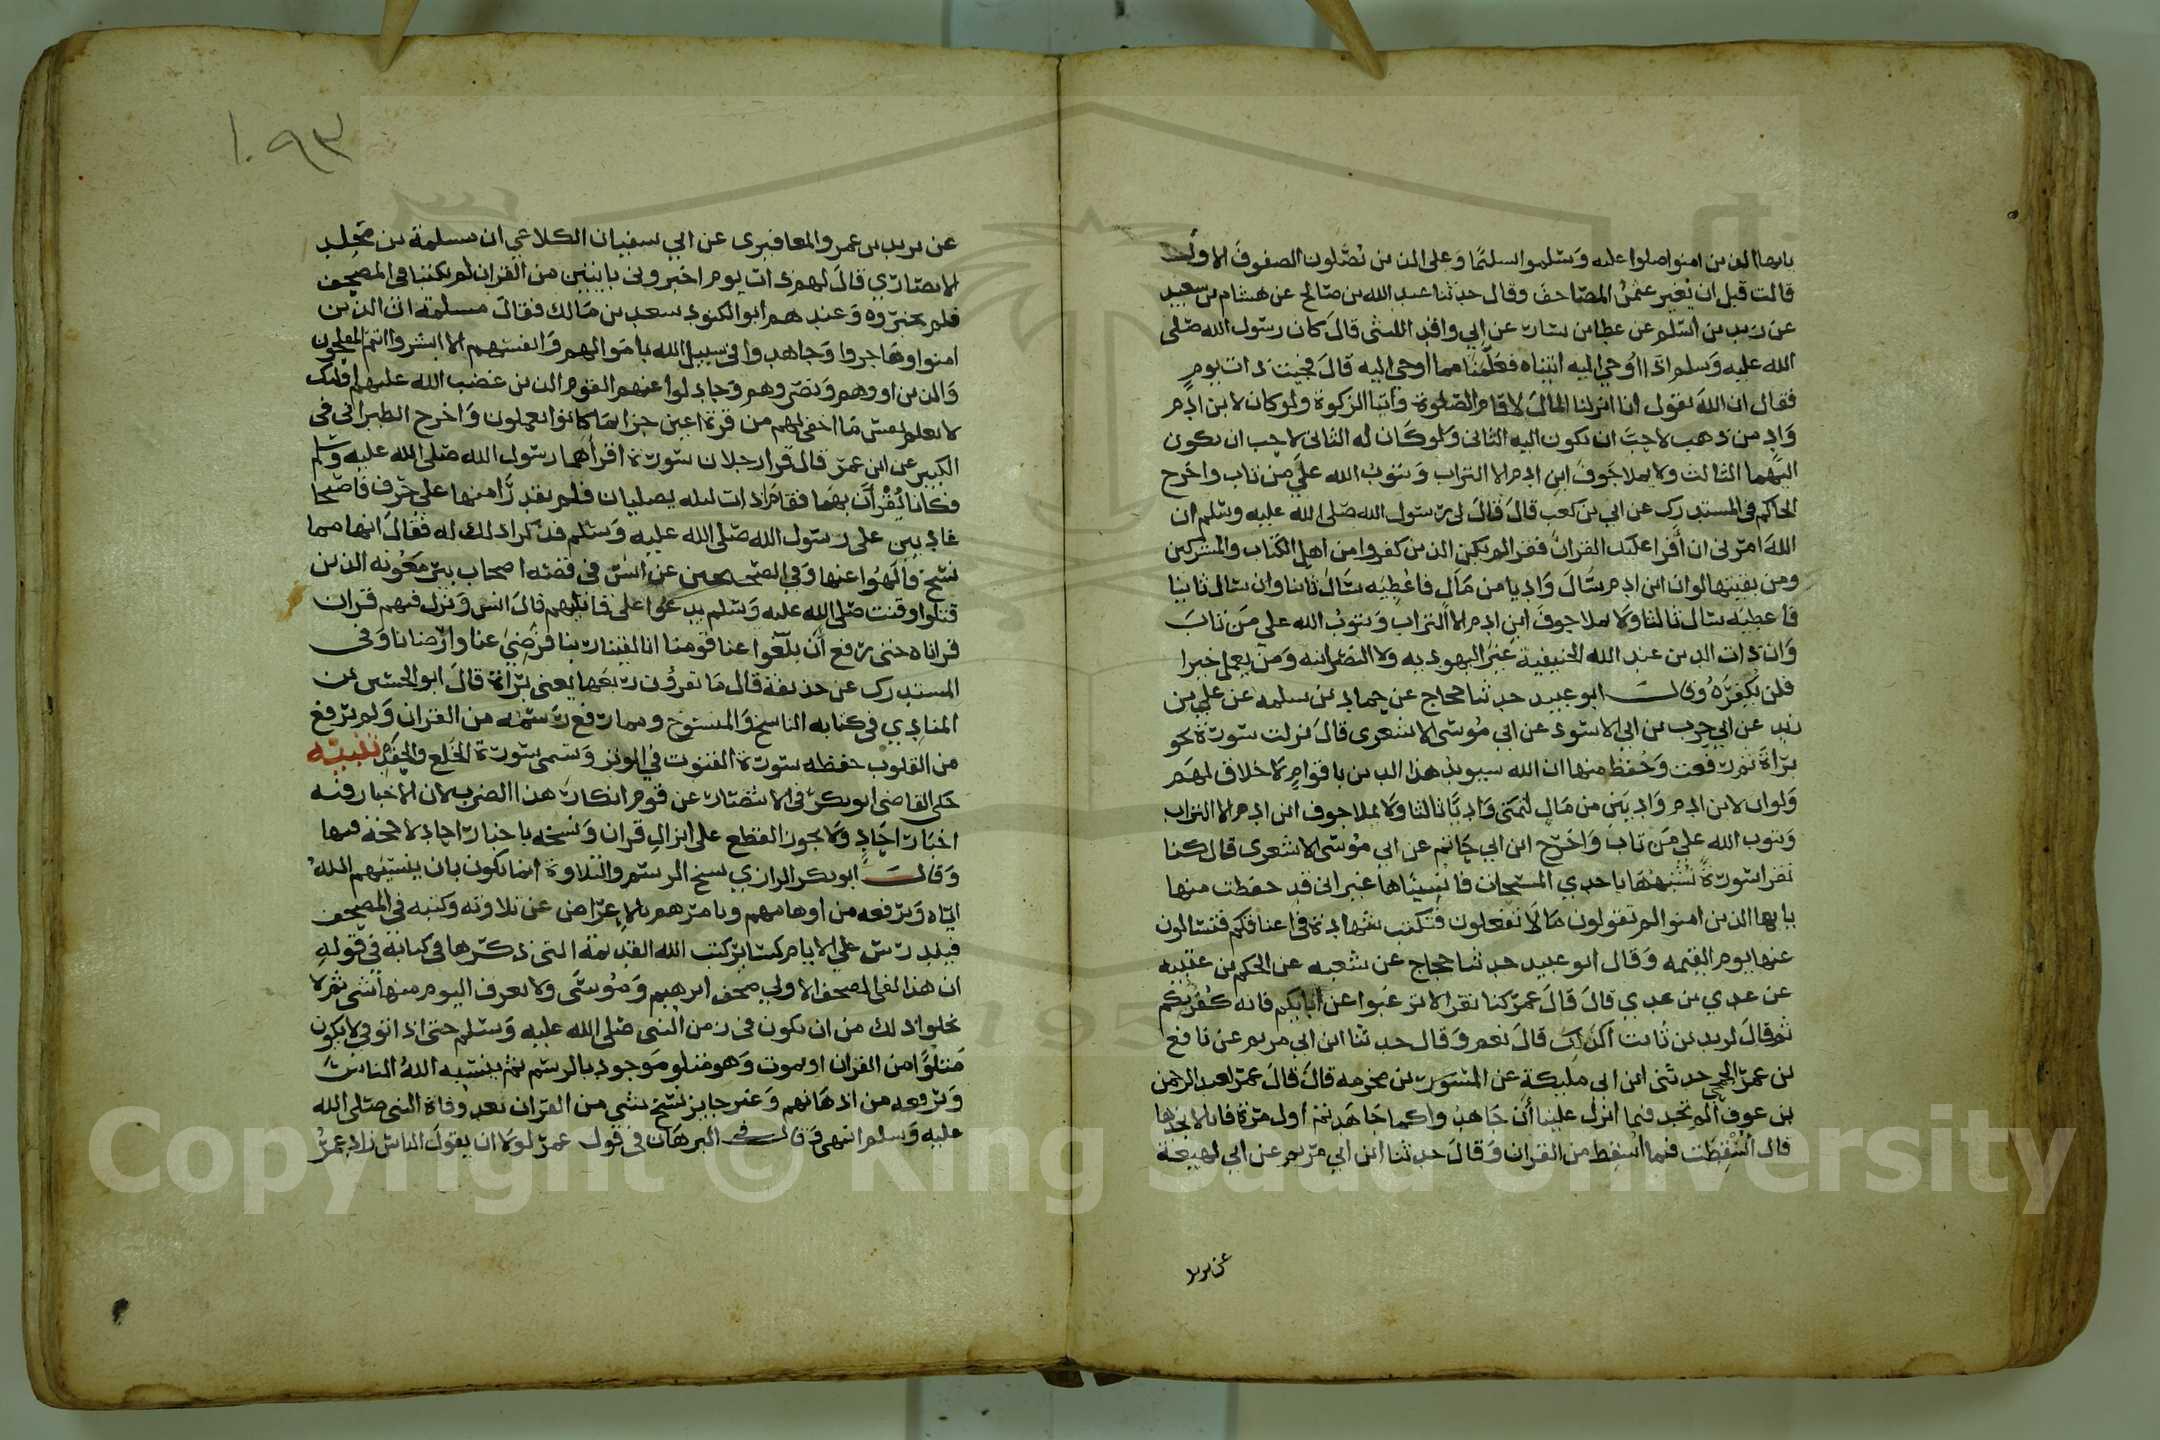 يايها الذين امنوا صلوا عليه وسلموا تسليما وعلى الذين يصلون الصفوف الاول
قالت قبل ان يغير عثمن المصاحف وقال حدثنا عبد الله بن صالح عن هشام بن سعيد
عن زيد بن اسلم عن عطا بن يسار عن ابي واقد الليثى قال كان رسول الله صلى
الله عليه وسلم اذا اوحي اليه اتيناه فعلمنا مما اوحي اليه قال فجيت ذات يوم
فقال ان الله يقول انا انزلنا المال لاقام الصلوة وايتا الزكوة ولو كان لابن ادم
واد من ذهب لاحب ان يكون اليه الثانى ولو كان له الثانى لاحب ان يكون
اليهما الثالث ولا يملا جوف ابن ادم الا التراب ويتوب الله على من تاب واخرج
الحاكم فى المستدرك عن ابي بن كعب قال قال لى رسول الله صلى الله عليه وسلم ان
الله امرنى ان أقرا عليك القران فقرا لم يكن الذين كفروا من اهل الكتاب والمشركين
ومن بقيتها لو ان ابن ادم سال واديا من مال فاعطيه سال ثانيا وان سال ثانيا
فاعطيه سال ثالثا ولا يملا جوف ابن ادم الا التراب ويتوب الله على من تاب
وان ذات الدين عند الله الحنيفية غير اليهودية ولا النصرانية ومن يعمل خيرا
فلن يكفره وقال ابو عبيد حدثنا حجاج عن حماد بن سلمه عن علي بن
زيد عن ابي حرب بن ابي الاسود عن ابي موسى الاشعرى قال نزلت سورة نحو
براة ثم رفعت وحفظ منها ان الله سيويد هذا الدين باقوام لا خلاق لهم
ولو ان لابن ادم واديين من مال لتمنى واديا ثالثا ولا يملا جوف ابن ادم الا التراب
ويتوب الله على من تاب واخرج ابن ابي حاتم عن ابي موسى الاشعرى قال كنا
نقرا سورة نشبهها باحدي المسبحات فانسيناها غير انى قد حفظت منها
يايها الذين امنوا لم تقولون ما لا تفعلون فتكتب شهادة فى اعناقكم فتسالون
عنها يوم القيمه وقال ابو عبيد حدثنا حجاج عن شعبه عن الحكم بن عتيبه
عن عدي بن عدي قال قال عمر كنا نقرا لا ترغبوا عن ابايكم فانه كفر بكم
ثم قال لزيد بن ثابت اكذلك قال نعم وقال حدثنا ابن ابي مريم عن نافع
بن عمر الجمحي حدثنى ابن ابى مليكة عن المسور بن مخرمه قال قال عمر لعبد الرحمن
بن عوف الم تجد فيما انزل علينا أن جاهدوا كما جاهدتم اول مرة فانا لا نجدها
قال أسقطت فيما اسقط من القران وقال حدثنا ابن ابي مريم عن ابي لهيعة
عن يزيد
١٠٩٣
عن يزيد بن عمرو المعافيرى عن ابي سفيان الكلاعي ان مسلمة بن مخلد
الانصاري قال لهم ذات يوم اخبرونى بايتين من القران لم يكتبا فى المصحف
فلم يخبروه وعندهم ابو الكنود سعد بن مالك فقال مسلمة ان الذين
امنوا وهاجروا وجاهدوا فى سبيل الله باموالهم وانفسهم الا ابشروا انتم المفلحون
والذين اووهم ونصروهم وجادلوا عنهم القوم الذين غضب الله عليهم اوليك
لا تعلم نفس ما اخفى لهم من قرة اعين جزا بما كانوا يعملون واخرج الطبرانى فى
الكبير عن ابن عمر قال قرا رجلان سورة اقرأهما رسول الله صلى الله عليه وسلم
فكانا يقرأن بها فقاما ذات ليله يصليان فلم يقدرا منها على حرف فاصبحا
غاديين على رسول الله صلى الله عليه وسلم فذكرا ذلك له فقال انها مما
نسخ فالهوا عنها وفي الصحيحين عن انس فى قصة اصحاب بير معونه الذين
قتلوا وقنت صلى الله عليه وسلم يدعوا على قاتليهم قال انس ونزل فيهم قران
قراناه حتى رفع أن بلغوا عنا قومنا انا لقينا ربنا فرضي عنا وارضانا وفى
المستدرك عن حذيفة قال ما تقرون ربعها يعنى براة قال ابو الحسن بن
المنادي فى كتابه الناسخ والمنسوخ ومما رفع رسمه من القران ولم يرفع
من القلوب حفظه سورة القنوت في الوتر وتسمى سورة الخلع والحفد تنبيه
حكى القاضى ابو بكر فى الانتصار عن قوم انكار هذا الضرب لان الاخبار فيه
اخبار احاد ولا يجوز القطع على انزال قران ونسخه باخبار احاد لا حجة فيها
وقال ابو بكر الرازي نسخ الرسم والتلاوة انما تكون بان ينسيهم الله
اياه ويرفعه من اوهامهم ويامرهم بالاعراض عن تلاوته وكتبه في المصحف
فيندرس على الايام كساير كتب الله القديمة التى ذكرها في كتابه فى قوله
ان هذا لفى الصحف الاولي صحف ابرهيم وموسى ولا يعرف اليوم منها شي ثم لا
يخلوا ذلك من ان يكون فى زمن النبى صلى الله عليه وسلم حتى اذا توفي لا يكون
متلوا من القران او يموت وهو متلو موجود بالرسم ثم ينسيه الله الناس
ويرفعه من اذهانهم وغير جايز نسخ شي من القران بعد وفاة النبى صلى الله
عليه وسلم انتهى وقال فى البرهان فى قول عمر لولا ان يقول الناس زاد عمر
Copyright © King Saud University